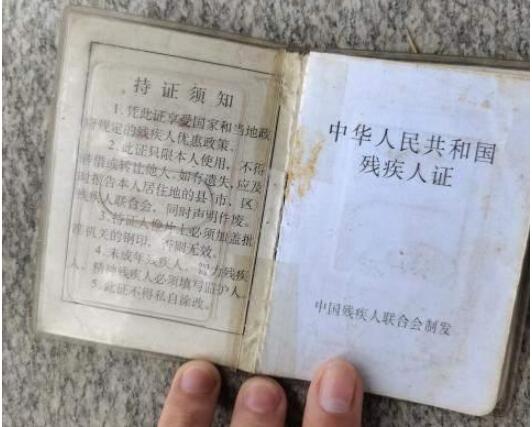 持证须知
1. 凭此证享受国家和当地政
府规定的残疾人优惠政策。
2. 此证只限本人使用，不得
转借或转让他人。如有遗失，应及
时报告本人居住地的县、市、区
残疾人联合会，同时声明作废。
3. 持证人像片上必须加盖批
准机关的钢印，否则无效。
4. 未成年残疾人、智力残疾
人、精神残疾人必须填写监护人。
5. 此证不得私自涂改。
中华人民共和国
残疾人证
中国残疾人联合会制发